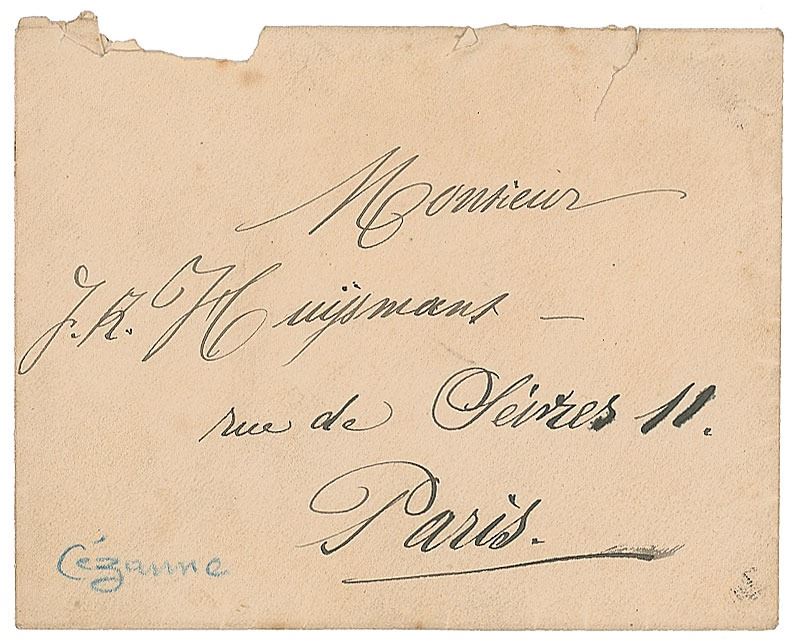 Monsieur
J. K. Huijsmans —
rue de Sèvres 11.
Paris.
Cézanne